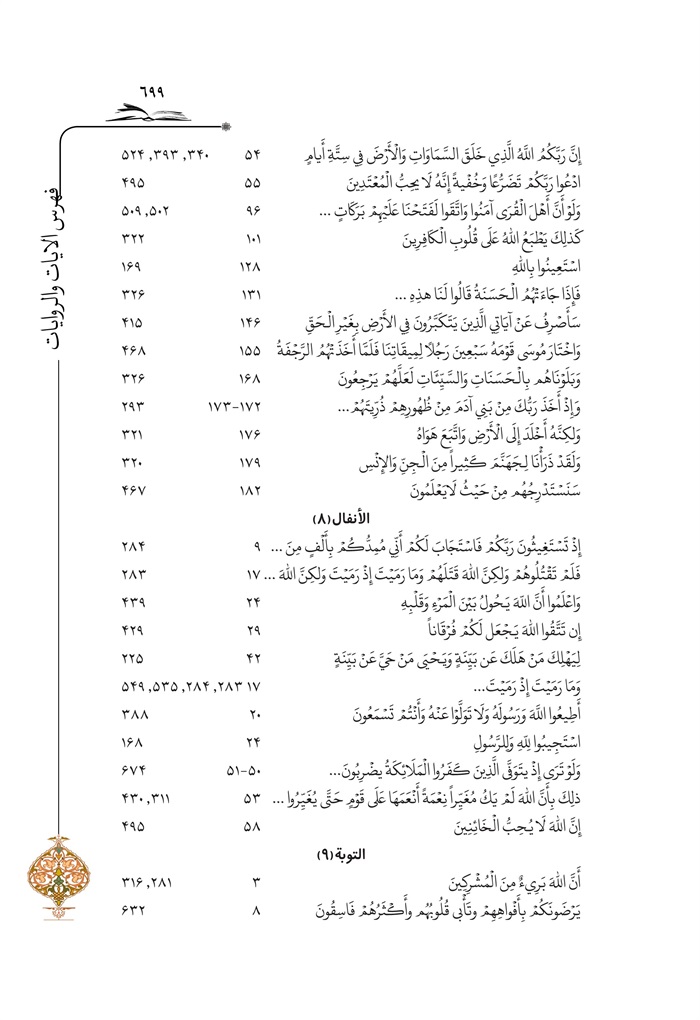 ٦٩٩
فهرس الآيات والروايات
إِنَّ رَبَّكُمُ اللَّهُ الَّذِي خَلَقَ السَّمَاوَاتِ وَالْأَرْضَ فِي سِتَّةِ أَيامٍ ۵۴ ۳۴۰، ۳۹۳، ۵۲۴
ادْعُوا رَبَّكُمْ تَضَرُّعًا وَخُفْيةً إِنَّهُ لَا يحِبُّ الْمُعْتَدِينَ ۵۵ ۴۹۵
وَلَوْ أَنَّ أَهْلَ الْقُرَى آمَنُوا وَاتَّقَوا لَفَتَحْنَا عَلَيْهِمْ بَرَكَاتٍ ... ۹۶ ۵۰۲، ۵۰۹
كَذلِكَ يَطْبَعُ اللهُ عَلَى قُلُوبِ الْكَافِرِينَ ۱۰۱ ۳۲۲
اسْتَعِينُوا بِاللهِ ۱۲۸ ۱۶۹
فَإِذَا جَاءَتْهُمُ الْحَسَنَةُ قَالُوا لَنَا هذِهِ ... ۱۳۱ ۳۲۶
سَأَصْرِفُ عَنْ آيَاتِي الَّذِينَ يَتَكَبَّرُونَ فِي الْأَرْضِ بِغَيْرِ الْحَقِّ ۱۴۶ ۴۱۵
وَاخْتَارَ مُوسَى قَوْمَهُ سَبْعِينَ رَجُلاً لِمِيقَاتِنَا فَلَمَّا أَخَذَتْهُمُ الرَّجْفَةُ ۱۵۵ ۴۶۸
وَبَلَوْنَاهُم بِالْحَسَنَاتِ وَالسَّيِّئَاتِ لَعَلَّهُمْ يَرْجِعُونَ ۱۶۸ ۳۲۶
وَإِذْ أَخَذَ رَبُّكَ مِنْ بَنِي آدَمَ مِنْ ظُهُورِهِمْ ذُرِيَّتَهُمْ... ۱۷۲-۱۷۳ ۲۹۳
وَلكِنَّهُ أَخْلَدَ إِلَى الْأَرْضِ وَاتَّبَعَ هَوَاهُ ۱۷۶ ۳۲۱
وَلَقَدْ ذَرَأْنَا لِجَهَنَّمَ كَثِيراً مِنَ الْجِنِّ وَالإِنْسِ ۱۷۹ ۳۲۰
سَنَسْتَدْرِجُهُم مِنْ حَيْثُ لَايَعْلَمُونَ ۱۸۲ ۴۶۷
الأنفال (٨)
إِذْ تَسْتَغِيثُونَ رَبَّكُمْ فَاسْتَجَابَ لَكُمْ أَنِّي مُمِدُّكُمْ بِأَلْفٍ مِنَ ... ۹ ۲۸۴
فَلَمْ تَقْتُلُوهُمْ وَلكِنَّ اللهَ قَتَلَهُمْ وَمَا رَمَيْتَ إِذْ رَمَيْتَ وَلكِنَّ اللهَ ... ۱۷ ۲۸۳
وَاعْلَمُوا أَنَّ اللهَ يَحُولُ بَيْنَ الْمَرْءِ وَقَلْبِهِ ۲۴ ۴۳۹
إِن تَتَّقُوا اللهَ يَجْعَل لَكُمْ فُرْقَاناً ۲۹ ۴۲۹
لِيَهْلِكَ مَنْ هَلَكَ عَن بَيِّنَةٍ وَيَحْيَى مَنْ حَيَّ عَنْ بَيِّنَةٍ ۴۲ ۲۲۵
وَمَا رَمَيْتَ إِذْ رَمَيْتَ... ۱۷ ۲۸۳، ۲۸۴، ۵۳۵، ۵۴۹
أَطِيعُوا اللَّهَ وَرَسُولَهُ وَلَا تَوَلَّوْا عَنْهُ وَأَنْتُمْ تَسْمَعُونَ ۲۰ ۳۸۸
اسْتَجِيبُوا لِلهِ وَلِلرَّسُولِ ۲۴ ۱۶۸
وَلَوْ تَرَى إِذْ يتَوَفَّى الَّذِينَ كَفَرُوا الْمَلَائِكَةُ يضْرِبُونَ... ۵۰-۵۱ ۶۷۴
ذلِكَ بِأَنَّ اللهَ لَمْ يَكُ مُغَيِّراً نِعْمَةً أَنْعَمَهَا عَلَى قَوْمٍ حَتَّى يُغَيِّرُوا ... ۵۳ ۳۱۱، ۴۳۰
إِنَّ اللهَ لَا يُحِبُّ الْخَائِنِينَ ۵۸ ۴۹۵
التوبة (٩)
أَنَّ اللهَ بَرِيءٌ مِنَ الْمُشْرِكِينَ ۳ ۲۸۱، ۳۱۶
يَرْضَونَكُمْ بِأَفْوَاهِهِمْ وتَأْبى قُلُوبُهُم وأَكْثَرُهُمْ فَاسِقُونَ ۸ ۶۳۲